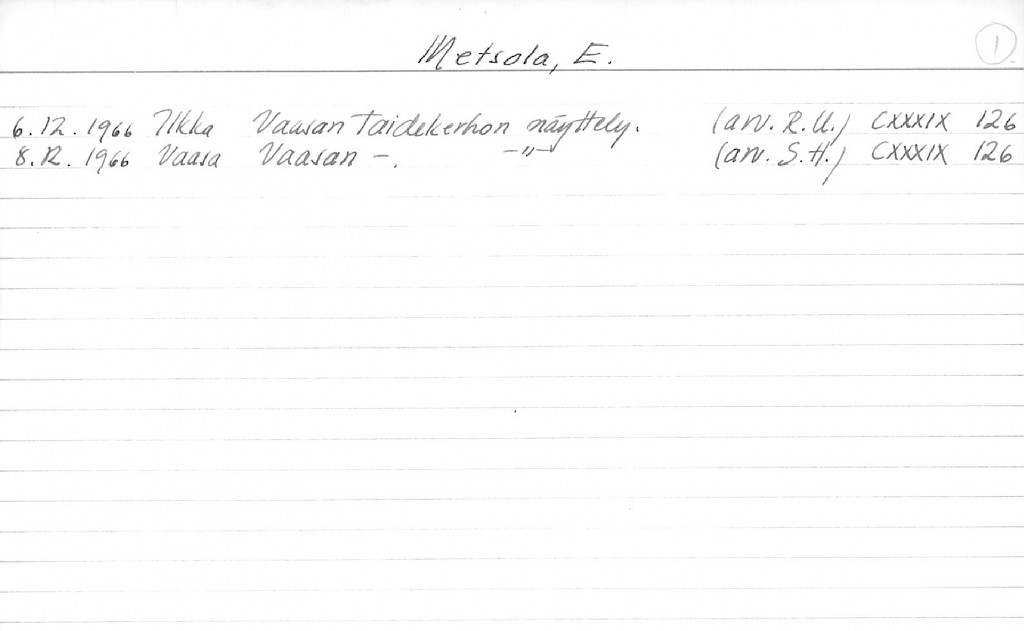 Metsola, E.
1
6.12.1966 Ilkka Vaasan Taidekerhon näyttely. (arv. R.U.) CXXXIX 126
8.12.1966 Vaasa Vaasan -. -"- (arv. S.H.) CXXXIX 126